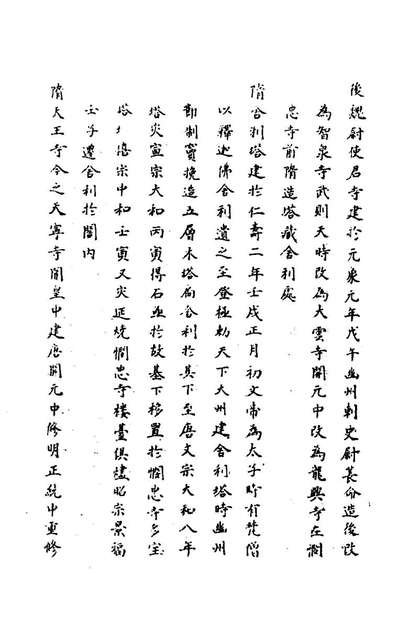 後魏尉使君寺建於元象元年戊午幽州刺史尉萇命造後改
為智泉寺武則天時改為大雲寺開元中改為龍興寺在憫
忠寺前隋造塔藏舍利處
隋舍利塔建於仁壽二年壬戌正月初文帝為太子時有梵僧
以釋迦佛舍利遺之至登極勅天下大州建舍利塔時幽州
節制竇抗造五層木塔飾舍利於其下至唐文宗大和八年
塔災宣宗大和丙寅得石函於故基下移置於憫忠寺多宝
塔 僖宗中和壬寅又災延燒憫忠寺樓臺俱燼昭宗景福
壬子遷舍利於閣内
隋天王寺今之天寧寺開皇中建唐開元中修明正統中重修